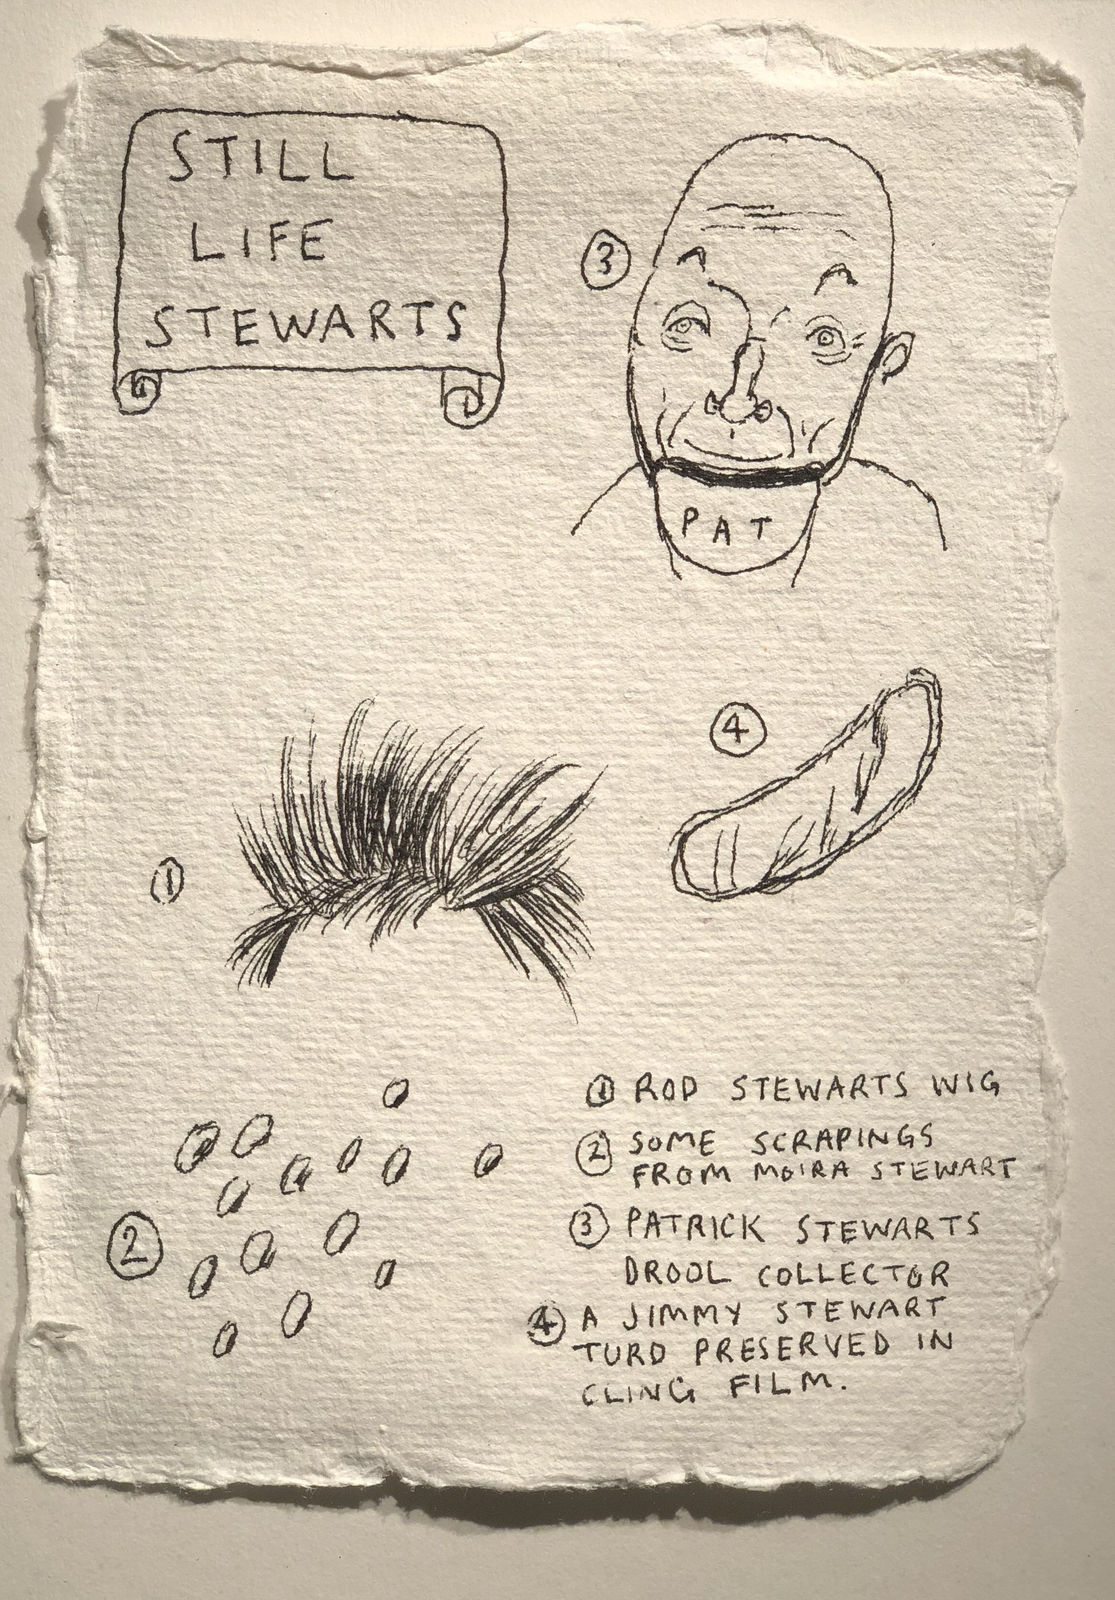 STILL
LIFE
STEWARTS
③
PAT
④
①
②
① ROD STEWARTS WIG
② SOME SCRAPINGS
FROM MOIRA STEWART
③ PATRICK STEWARTS
DROOL COLLECTOR
④ A JIMMY STEWART
TURD PRESERVED IN
CLING FILM.